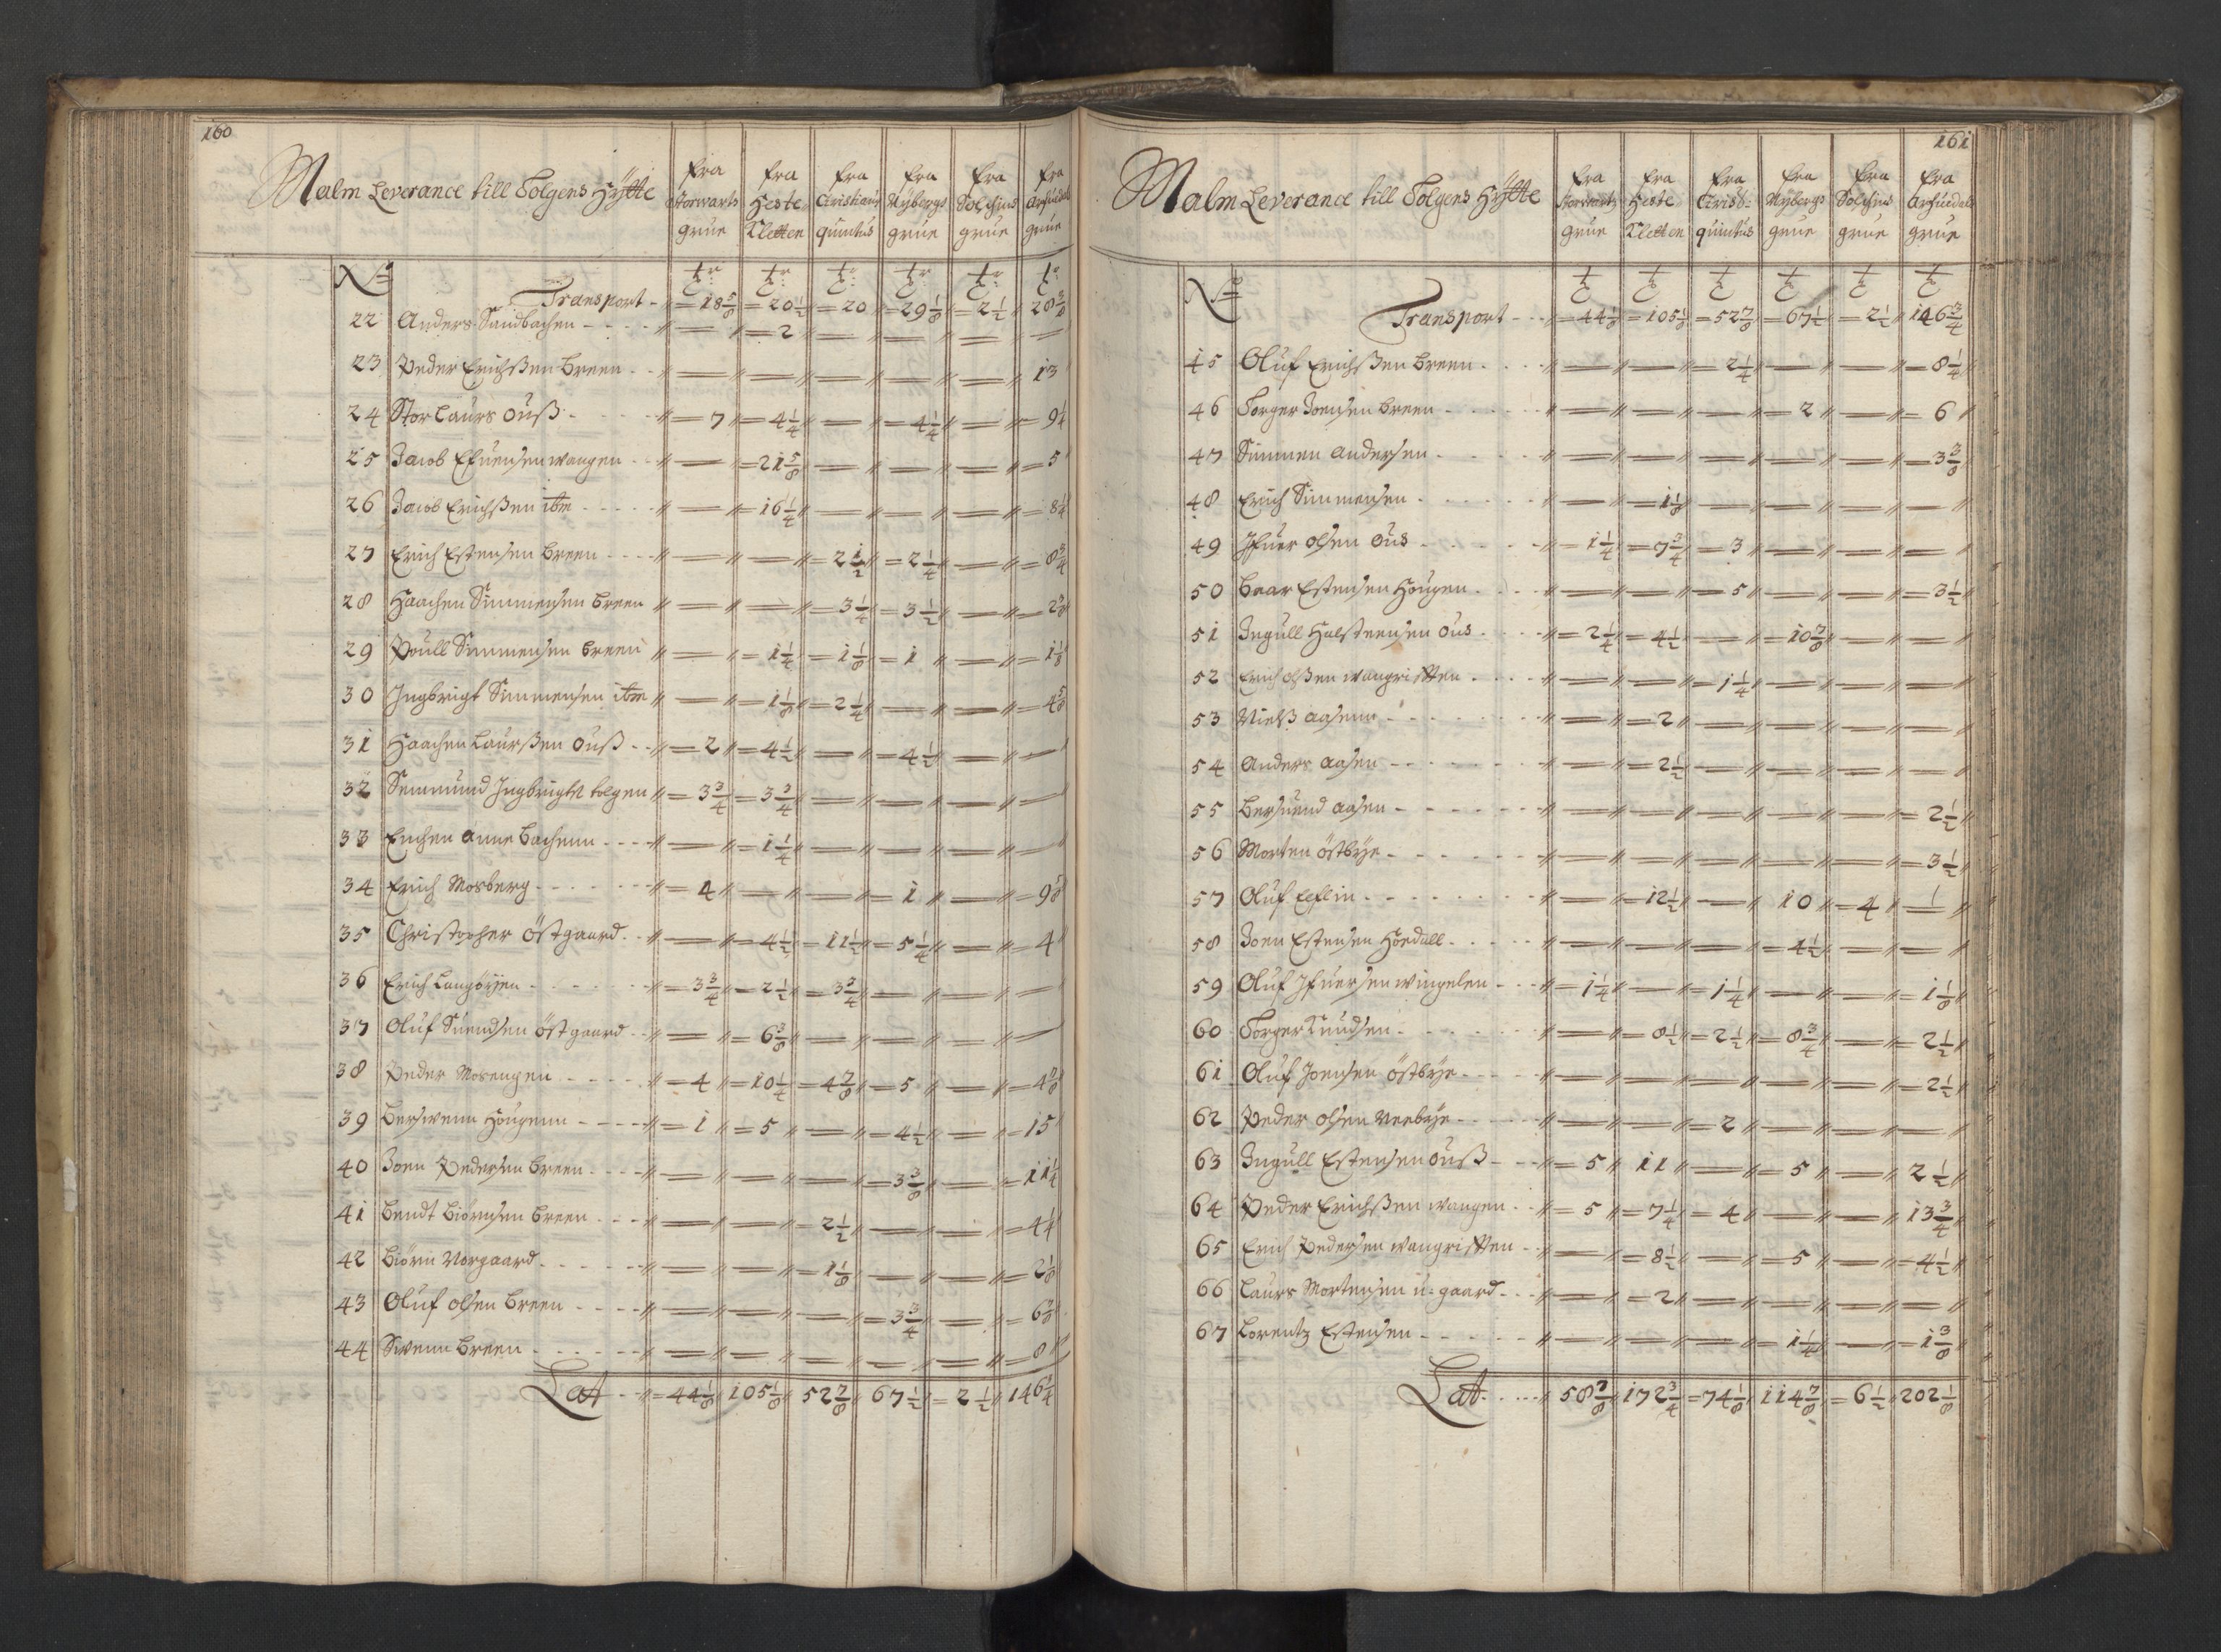 160
Malm Leverance till Tolgens Hÿtte
fra Storwarts grue
fra Heste Kletten
fra Cristianÿ quintus
fra Nÿbergs grue
fra Solskins grue
fra Arfuedals grue
No
Transport - = 18 5/8 = 20 1/2 = 20 = 29 1/8 = 2 1/2 28
22 Anders Sandbachen - - - - — = 2 — — — —
23 Peder Erichßen Breen - - — — — — — 13
24 Stor Laurs Ouß - - - = 7 = 4 1/4 — = 4 1/4 — = 9 1/4
25 Jacob Efuensen wangen - - — = 21 5/8 — — — = 5
26 Jacob Erichßen itm - - - - — = 16 1/4 — — — = 8 1/4
27 Erich Estensen Breen - - - - — — = 2 1/2 = 2 1/4 — = 8 3/4
28 Haachen Simmensen Breen — — = 3 1/4 = 3 1/2 — = 2 7/8
29 Poull Simmensen Breen — = 1 1/4 = 1 1/8 = 1 — = 1 1/8
30 Ingbrigt Simmensen itm — = 1 1/8 = 2 1/4 — — = 4 5/8
31 Haachen Laurßen Ouß - - = 2 = 4 1/2 — = 4 1/2 — —
32 Semmund Ingbrigts tolgen = 3 3/4 = 3 3/4 — — — —
33 Enchen Anne Bachenn - - - - — = 1 1/4 — — — —
34 Erich Mosberg - - - - - - = 4 — — = 1 — = 9
35 Christopher Östgaard - - — = 4 1/2 = 11 1/2 = 5 1/4 — = 4
36 Erich Langöÿen - - - - - = 3 3/4 = 2 1/2 = 3 3/4 — — —
37 Oluf Suendsen östgaard - - — = 6 3/8 — — — —
38 Peder Mosengen - - - - = 4 = 10 1/4 = 4 7/8 = 5 — = 4
39 Berswenn Hougenn - - - - = 1 = 5 — = 4 1/2 — = 15
40 Joen Pedersen Breen - - - - — — — = 3 3/8 — = 11 1/4
41 Bendt Biörnsen Breen - - - — — = 2 1/2 — — = 4 1/4
42 Biörn Norgaard - - - - - — — = 1 1/8 — — = 2 1/8
43 Oluf Olsen Breen - - - - — — — = 3 3/4 — = 6
44 Swenn Breen - - - - - — — — — — = 8
Lat - - = 44 1/8 105 1/8 52 7/8 67 1/2 = 2 1/2 146 3/4
161
Malm Leverance till Tolgens Hÿtte
fra Storwarts grue
fra Heste Kletten
fra Crist: quintus
fra Nÿbergs grue
fra Solskins grue
fra Arfuedals grue
No
Transport - - = 44 1/8 = 105 1/8 = 52 7/8 = 67 1/2 = 2 1/2 146 3/4
45 Oluf Erichßen Breen - - - — — = 2 1/4 — — = 8 1/4
46 Torger Joensen Breen - - - - — — — = 2 — = 6
47 Simmen Andersen - - - - — — — — — = 3 3/8
48 Erich Simmensen - - - - - — = 1 1/8 — — — —
49 Ifuer Olsen Ous - - - - = 1 1/4 = 7 3/4 = 3 — — —
50 Baar Estensen Hougen - - - — — = 5 — — = 3 1/2
51 Ingull Halsteensen Ous - - - = 2 1/4 = 4 1/2 — = 10 7/8 — —
52 Erich Olßen wangrißten - - - — — = 1 1/4 — — —
53 Nielß Aasenn - - - - - — = 2 — — — —
54 Anders Aasen - - - - - — = 2 1/2 — — — —
55 Bersuend Aasen - - - - - — — — — — = 2 1/2
56 Morten östbÿe - - - - - — — — — — = 3 1/2
57 Oluf Eeflin - - - - - - — = 12 1/2 — 10 = 4 —
58 Joen Estensen Hoedall - - - - — — — = 4 1/2 — —
59 Oluf Ifuersen wingelen - - - = 1 1/4 — = 1 1/4 — — = 1 1/8
60 Torger Knudsen - - - - - — = 8 1/2 = 2 1/2 = 8 3/4 — = 2 1/2
61 Oluf Joensen östbÿe - - - - — — — — — = 2 1/2
62 Peder Olsen Neebÿe - - - - — — = 2 — — —
63 Ingull Estensen Ouß - - - = 5 11 — = 5 — 2 1/2
64 Peder Erichßen wangen - - = 5 = 7 1/4 = 4 — — 13 3/4
65 Erich Pedersen wangrißten - - — = 8 1/2 — = 5 — = 4 1/2
66 Laurs Mortensen u-gaard - - — = 2 — — — —
67 Lorentz Estensen - - - - - — — — = 1 1/4 — = 1 3/8
Lat - - - - 58 7/8 172 3/4 = 74 1/8 114 7/8 = 6 1/2 202 1/8